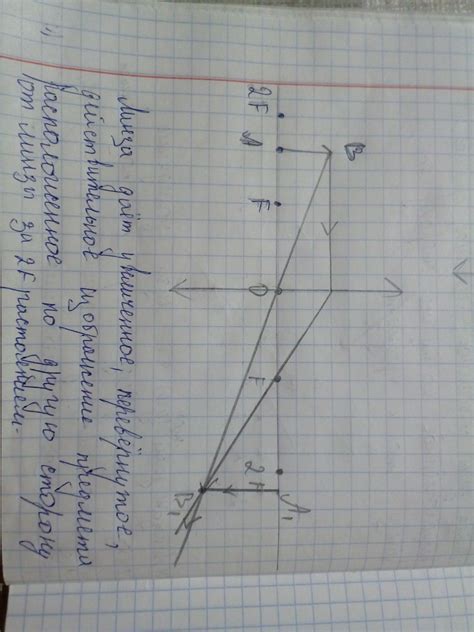 B
2F A F O F 2F A₁
B₁
1) Линза даёт увеличенное, перевёрнутое,
действительное изображение предмета
расположенное по другую сторону
от линзы за 2F растоянием.